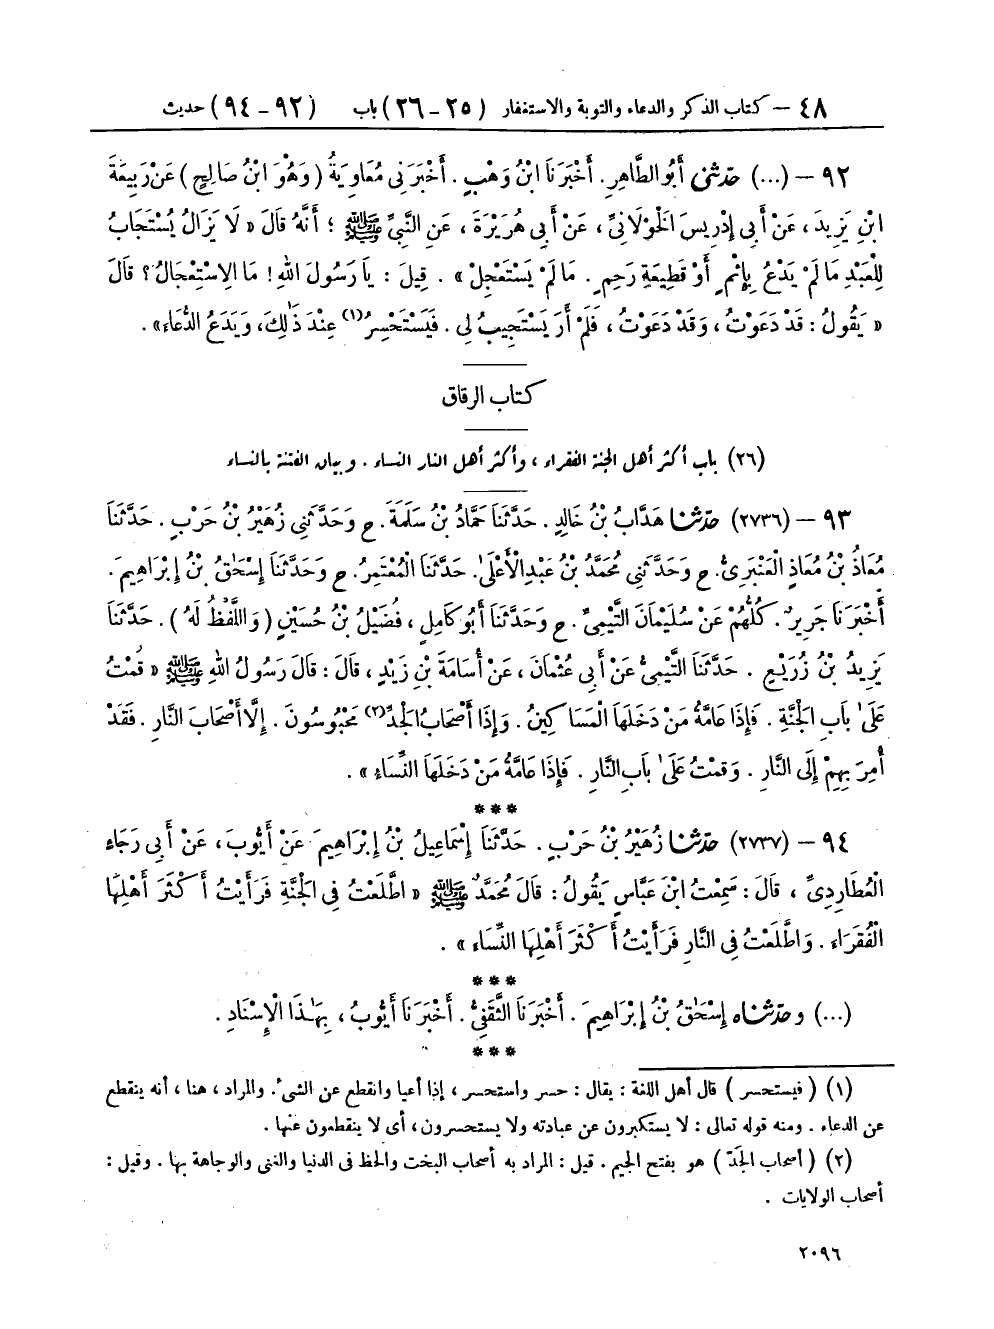 ٤٨ – كتاب الذكر والدعاء والتوبة والاستغفار (٢٥ – ٢٦) باب (٩٢ – ٩٤) حديث
٩٢ – (...) حَدَّثَنِي أَبُو الطَّاهِرِ. أَخْبَرَنَا ابْنُ وَهْبٍ. أَخْبَرَنِي مُعَاوِيَةُ (وَهُوَ ابْنُ صَالِحٍ) عَنْ رَبِيعَةَ
ابْنِ يَزِيدَ، عَنْ أَبِي إِدْرِيسَ الْخَوْلَانِيِّ، عَنْ أَبِي هُرَيْرَةَ، عَنِ النَّبِيِّ ﷺ ؛ أَنَّهُ قَالَ « لَا يَزَالُ يُسْتَجَابُ
لِلْعَبْدِ مَا لَمْ يَدْعُ بِإِثْمٍ أَوْ قَطِيعَةِ رَحِمٍ. مَا لَمْ يَسْتَعْجِلْ ». قِيلَ : يَا رَسُولَ اللهِ! مَا الِاسْتِعْجَالُ؟ قَالَ
« يَقُولُ : قَدْ دَعَوْتُ، وَقَدْ دَعَوْتُ، فَلَمْ أَرَ يَسْتَجِيبُ لِي. فَيَسْتَحْسِرُ(١) عِنْدَ ذَٰلِكَ، وَيَدَعُ الدُّعَاءَ».
كتاب الرقاق
(٢٦) باب أكثر أهل الجنة الفقراء، وأكثر أهل النار النساء. وبيان الفتنة بالنساء
٩٣ – (٢٧٣٦) حَدَّثَنَا هَدَّابُ بْنُ خَالِدٍ. حَدَّثَنَا حَمَّادُ بْنُ سَلَمَةَ. ح وَحَدَّثَنِي زُهَيْرُ بْنُ حَرْبٍ. حَدَّثَنَا
مُعَاذُ بْنُ مُعَاذٍ الْعَنْبَرِيُّ. ح وَحَدَّثَنِي مُحَمَّدُ بْنُ عَبْدِ الْأَعْلَىٰ. حَدَّثَنَا الْمُعْتَمِرُ. ح وَحَدَّثَنَا إِسْحَٰقُ بْنُ إِبْرَاهِيمَ.
أَخْبَرَنَا جَرِيرٌ. كُلُّهُمْ عَنْ سُلَيْمَانَ التَّيْمِيِّ. ح وَحَدَّثَنَا أَبُو كَامِلٍ، فُضَيْلُ بْنُ حُسَيْنٍ (وَاللَّفْظُ لَهُ). حَدَّثَنَا
يَزِيدُ بْنُ زُرَيْعٍ. حَدَّثَنَا التَّيْمِيُّ عَنْ أَبِي عُثْمَانَ، عَنْ أُسَامَةَ بْنِ زَيْدٍ، قَالَ : قَالَ رَسُولُ اللهِ ﷺ « قُمْتُ
عَلَىٰ بَابِ الْجَنَّةِ. فَإِذَا عَامَّةُ مَنْ دَخَلَهَا الْمَسَاكِينُ. وَإِذَا أَصْحَابُ الْجَدِّ(٢) مَحْبُوسُونَ. إِلَّا أَصْحَابَ النَّارِ. فَقَدْ
أُمِرَ بِهِمْ إِلَى النَّارِ. وَقُمْتُ عَلَىٰ بَابِ النَّارِ. فَإِذَا عَامَّةُ مَنْ دَخَلَهَا النِّسَاءُ ».
***
٩٤ – (٢٧٣٧) حَدَّثَنَا زُهَيْرُ بْنُ حَرْبٍ. حَدَّثَنَا إِسْمَاعِيلُ بْنُ إِبْرَاهِيمَ عَنْ أَيُّوبَ، عَنْ أَبِي رَجَاءٍ
الْعُطَارِدِيِّ، قَالَ : سَمِعْتُ ابْنَ عَبَّاسٍ يَقُولُ : قَالَ مُحَمَّدٌ ﷺ « اطَّلَعْتُ فِي الْجَنَّةِ فَرَأَيْتُ أَكْثَرَ أَهْلِهَا
الْفُقَرَاءَ. وَاطَّلَعْتُ فِي النَّارِ فَرَأَيْتُ أَكْثَرَ أَهْلِهَا النِّسَاءَ ».
***
(...) وحَدَّثَنَاه إِسْحَٰقُ بْنُ إِبْرَاهِيمَ. أَخْبَرَنَا الثَّقَفِيُّ. أَخْبَرَنَا أَيُّوبُ، بِهَٰذَا الْإِسْنَادِ.
***
(١) (فيستحسر) قال أهل اللغة : يقال : حسر واستحسر، إذا أعيا وانقطع عن الشيء. والمراد، هنا، أنه ينقطع
عن الدعاء. ومنه قوله تعالى : لا يستكبرون عن عبادته ولا يستحسرون، أي لا ينقطعون عنها.
(٢) (أصحاب الجَدّ) هو بفتح الجيم. قيل : المراد به أصحاب البخت والحظ في الدنيا والغنى والوجاهة بها. وقيل :
أصحاب الولايات.
٢٠٩٦